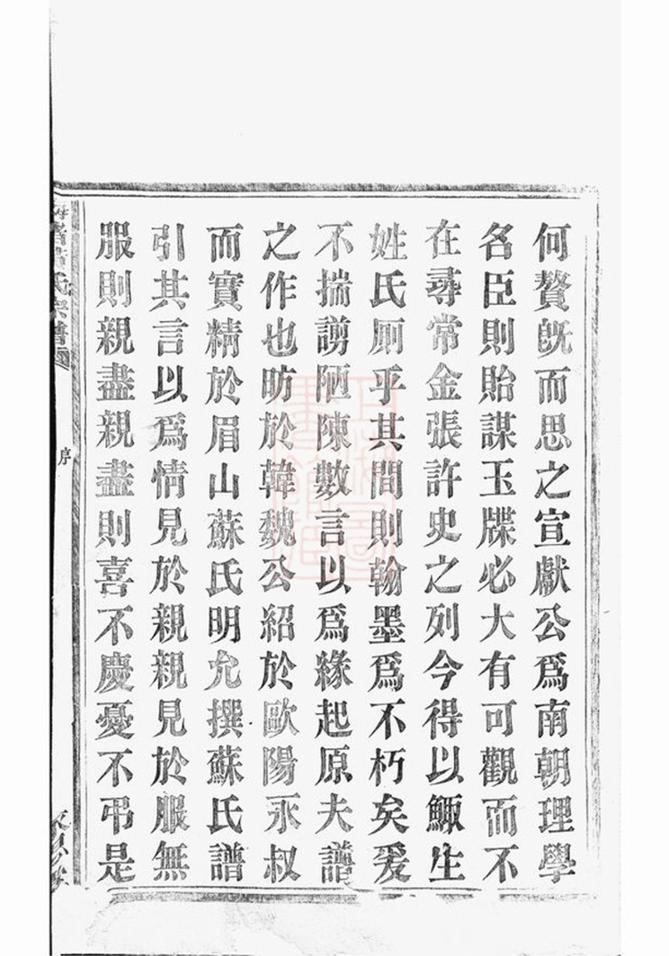 何贅旣而思之宣獻公爲南朝理學
名臣則貽謀玉牒必大有可觀而不
在尋常金張許史之列今得以鯫生
姓氏厠乎其間則翰墨爲不朽矣爰
不揣謭陋陳數言以爲緣起原夫譜
之作也昉於韓魏公紹於歐陽永叔
而實精於眉山蘇氏明允撰蘇氏譜
引其言以爲情見於親親見於服無
服則親盡親盡則喜不慶憂不弔是
序